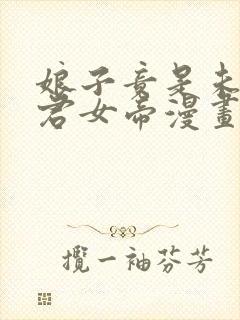 娘子竟是未
君女帝漫畫
攬一袖芬芳